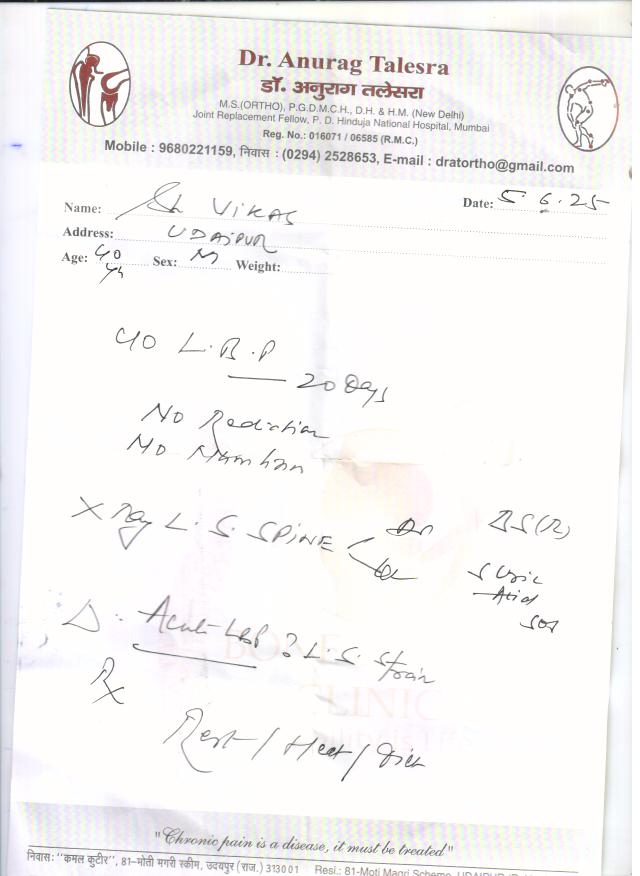 Dr. Anurag Talesra
डॉ. अनुराग तलेसरा
M.S.(ORTHO), P.G.D.M.C.H., D.H. & H.M. (New Delhi)
Joint Replacement Fellow, P. D. Hinduja National Hospital, Mumbai
Reg. No.: 016071 / 06585 (R.M.C.)
Mobile : 9680221159, निवास : (0294) 2528653, E-mail : dratortho@gmail.com
Name: Sh VIKAS Date: 5.6.25
Address: UDAIPUR
Age: 40 Sex: M Weight:
L.B.P
20 Days
No Radiation
No
X Ray L. S. SPINE BS(R)
S Uric
Acid
Δ. Acute LBP ? L. S. Strain
Rx
Rest / Heat /
BONE
CLINIC
"Chronic pain is a disease, it must be treated"
निवास: "कमल कुटीर", 81-मोती मगरी स्कीम, उदयपुर (राज.) 313001 Resi.: 81-Moti Magri Scheme,